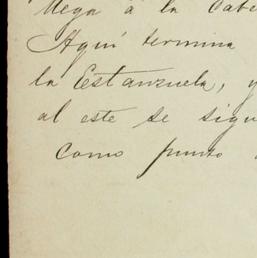 llega á la Cabe
Aquí termina
la Estanzuela, y
al este se sigu
como punto